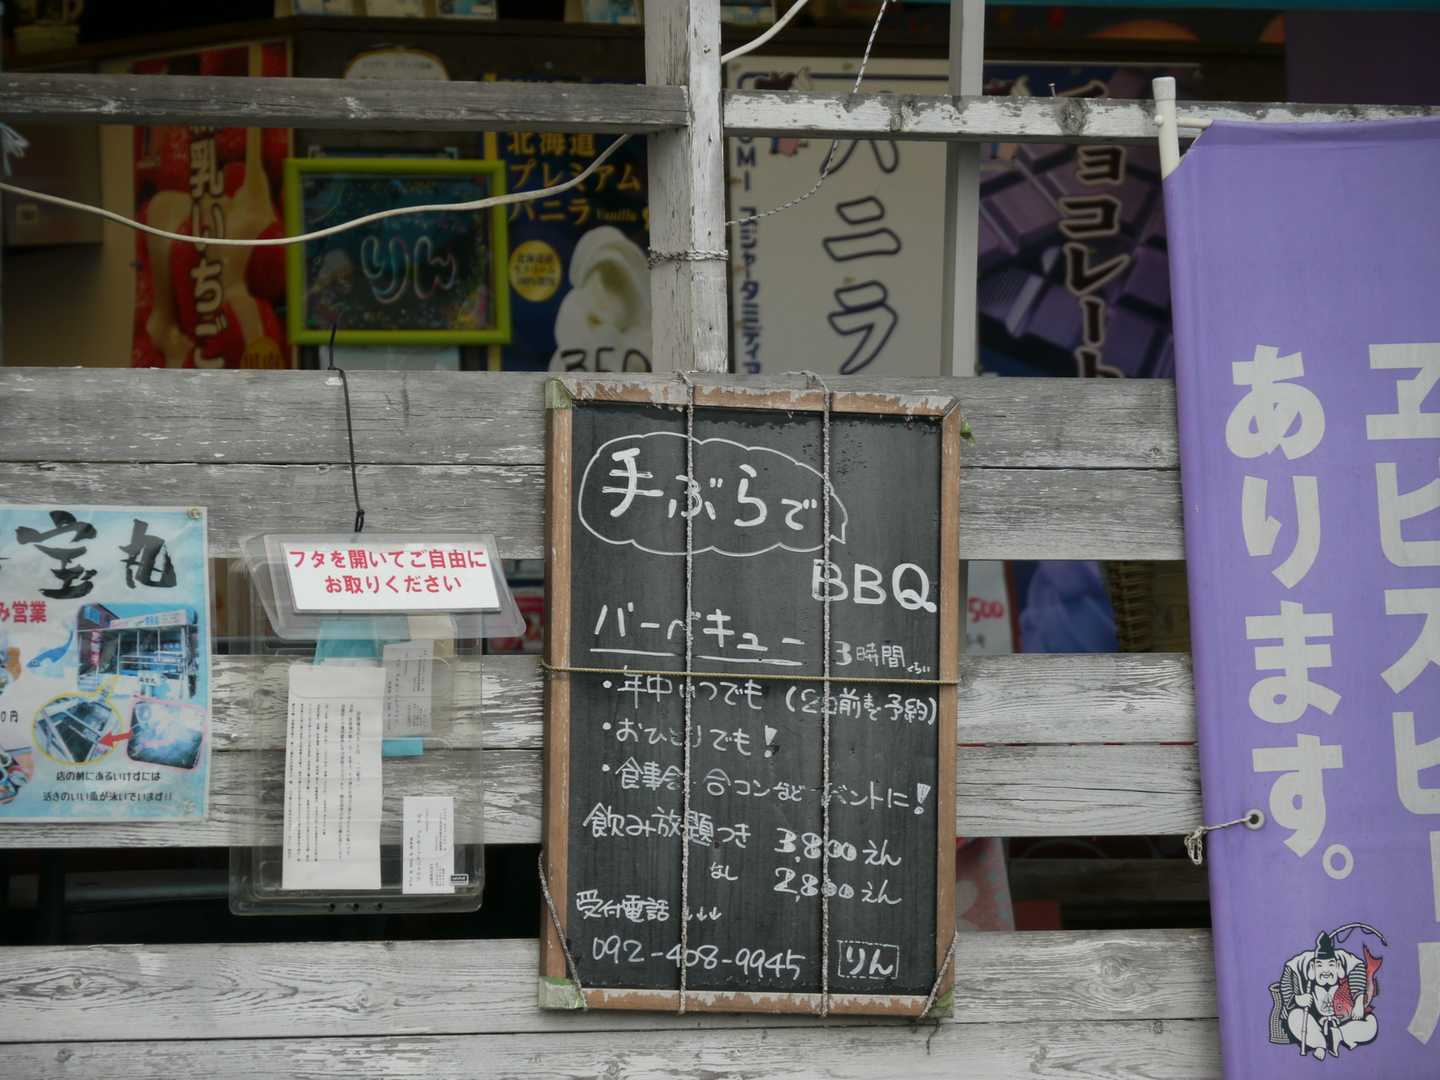 乳いちご
りん
北海道
プレミアム
バニラ Vanilla
350
バニラ
チョコレート
宝丸
み営業
0円
店の前にあるいけすには
活きのいい魚が泳いでいます!!
フタを開いてご自由に
お取りください
手ぶらで
BBQ
バーベキュー 3時間くらい
・年中いつでも (2日前まで予約)
・おひとりでも!
・食事会 合コンなど イベントに!
飲み放題つき 3,800えん
なし 2,800えん
受付電話 ↓↓↓
092-408-9945 りん
500
ヱビスビール
あります。